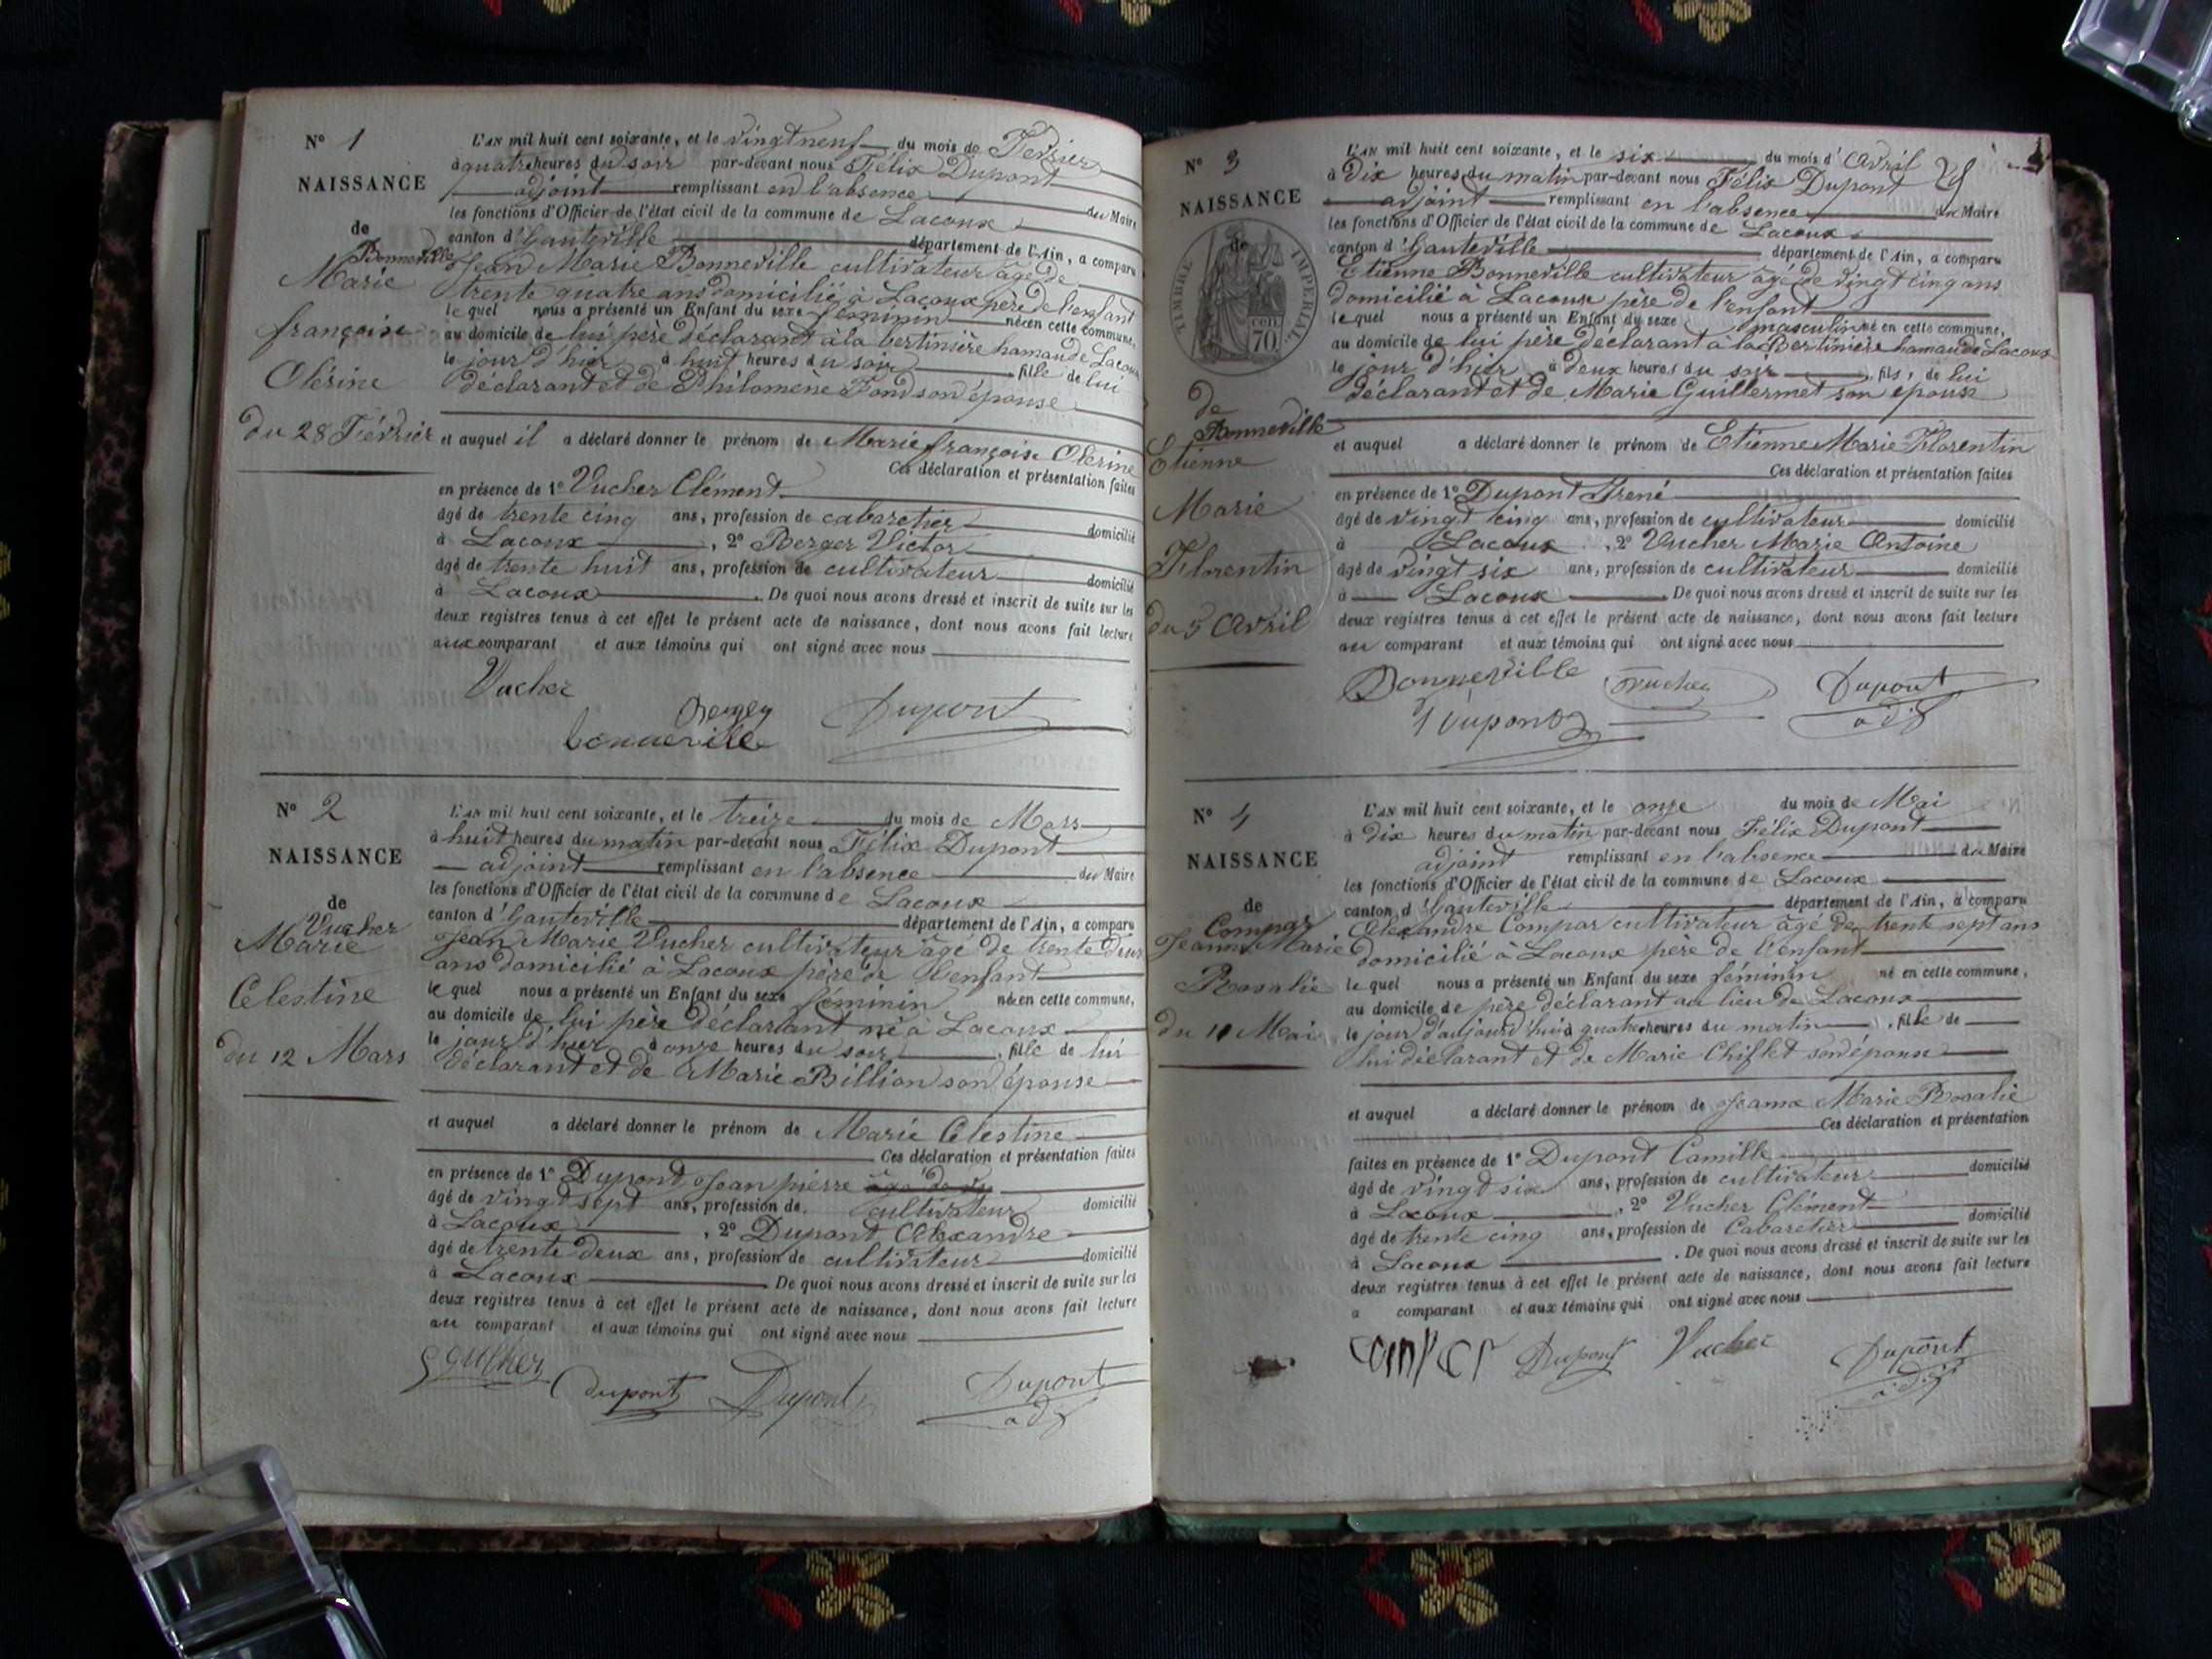 N° 1
NAISSANCE
de
Bonneville
Marie
françoise
Olérine
du 28 Février
L'AN mil huit cent soixante, et le vingt neuf du mois de Février
à quatre heures du soir par-devant nous Félix Dupont
adjoint remplissant en l'absence du Maire
les fonctions d'Officier de l'état civil de la commune de Lacoux
canton d'hauteville département de l'Ain, a comparu
Jean Marie Bonneville cultivateur âgé de
trente quatre ans domicilié à Lacoux père de l'enfant
le quel nous a présenté un Enfant du sexe féminin née en cette commune,
au domicile de lui père déclarant à la bertinière hamau de Lacoux
le jour d'hier à huit heures du soir fille de lui
déclarant et de Philomène Fond son épouse
et auquel il a déclaré donner le prénom de Marie françoise Olérine
Ces déclaration et présentation faites
en présence de 1° Vucher Clément
âgé de trente cinq ans, profession de cabaretier domicilié
à Lacoux, 2° Berger Victor
âgé de trente huit ans, profession de cultivateur domicilié
à Lacoux. De quoi nous avons dressé et inscrit de suite sur les
deux registres tenus à cet effet le présent acte de naissance, dont nous avons fait lecture
aux comparant et aux témoins qui ont signé avec nous
Vucher
Berger
bonneville Dupont
N° 2
NAISSANCE
de
Vucher
Marie
Celestine
du 12 Mars
L'AN mil huit cent soixante, et le treize du mois de Mars
à huit heures du matin par-devant nous Félix Dupont
adjoint remplissant en l'absence du Maire
les fonctions d'Officier de l'état civil de la commune de Lacoux
canton d'hauteville département de l'Ain, a comparu
Jean Marie Vucher cultivateur âgé de trente deux
ans domicilié à Lacoux père de l'enfant
le quel nous a présenté un Enfant du sexe féminin née en cette commune,
au domicile de lui père déclarant né à Lacoux
le jour d'hier à onze heures du soir, fille de lui
déclarant et de Marie Billion son épouse
et auquel a déclaré donner le prénom de Marie Celestine
Ces déclaration et présentation faites
en présence de 1° Dupont Jean pierre
âgé de vingt sept ans, profession de cultivateur domicilié
à Lacoux, 2° Dupont Alexandre
âgé de trente deux ans, profession de cultivateur domicilié
à Lacoux De quoi nous avons dressé et inscrit de suite sur les
deux registres tenus à cet effet le présent acte de naissance, dont nous avons fait lecture
au comparant et aux témoins qui ont signé avec nous
dupont Dupont Dupont
adj
N° 3
NAISSANCE
de
TIMBRE IMPERIAL
cen. 70
de
Bonneville
Etienne
Marie
Florentin
du 5 Avril
L'AN mil huit cent soixante, et le six du mois d'Avril
à Dix heures du matin par-devant nous Félix Dupont
adjoint remplissant en l'absence du Maire
les fonctions d'Officier de l'état civil de la commune de Lacoux
canton d'hauteville département de l'Ain, a comparu
Etienne Bonneville cultivateur âgé de vingt cinq ans
domicilié à Lacoux père de l'enfant
le quel nous a présenté un Enfant du sexe masculin né en cette commune,
au domicile de lui père déclarant à la Bertinière hamau de Lacoux
le jour d'hier à deux heures du soir, fils, de lui
déclarant et de Marie Guillermet son épouse
et auquel a déclaré donner le prénom de Etienne Marie Florentin
Ces déclaration et présentation faites
en présence de 1° Dupont Iréné
âgé de vingt cinq ans, profession de cultivateur domicilié
à Lacoux, 2° Vucher Marie Antoine
âgé de vingt six ans, profession de cultivateur domicilié
à Lacoux De quoi nous avons dressé et inscrit de suite sur les
deux registres tenus à cet effet le présent acte de naissance, dont nous avons fait lecture
au comparant et aux témoins qui ont signé avec nous
Bonneville Vucher Dupont
I Dupont adj
N° 4
NAISSANCE
de
Compar
Jeanne Marie
Rosalie
du 11 Mai
L'AN mil huit cent soixante, et le onze du mois de Mai
à dix heures du matin par-devant nous Félix Dupont
adjoint remplissant en l'absence du Maire
les fonctions d'Officier de l'état civil de la commune de Lacoux
canton d'hauteville département de l'Ain, a comparu
Alexandre Compar cultivateur âgé de trente sept ans
domicilié à Lacoux père de l'enfant
le quel nous a présenté un Enfant du sexe féminin né en cette commune,
au domicile de père déclarant au lieu de Lacoux
le jour d'aujourd'hui à quatre heures du matin, fille de
lui déclarant et de Marie Chiflet son épouse
et auquel a déclaré donner le prénom de Jeanne Marie Rosalie
Ces déclaration et présentation
faites en présence de 1° Dupont Camille
âgé de vingt six ans, profession de cultivateur domicilié
à Lacoux, 2° Vucher Clément
âgé de trente cinq ans, profession de Cabaretier domicilié
à Lacoux. De quoi nous avons dressé et inscrit de suite sur les
deux registres tenus à cet effet le présent acte de naissance, dont nous avons fait lecture
a comparant et aux témoins qui ont signé avec nous
Dupont Vucher Dupont
adj